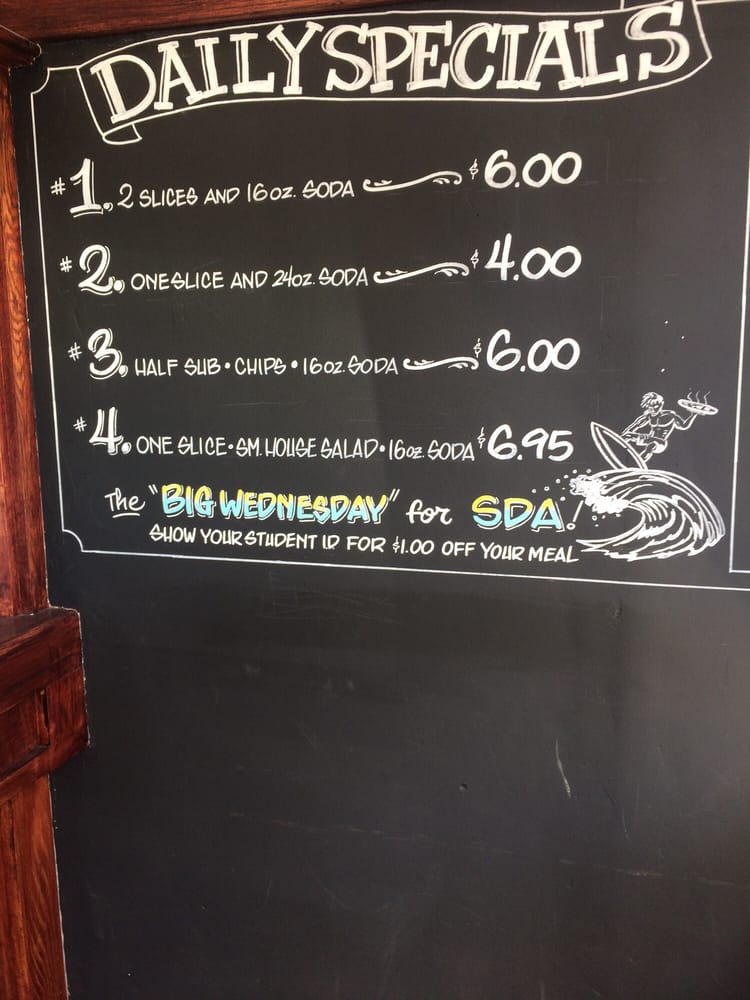 DAILY SPECIALS
#1. 2 SLICES AND 16OZ. SODA $6.00
#2. ONE SLICE AND 24OZ. SODA $4.00
#3. HALF SUB • CHIPS • 16OZ. SODA $6.00
#4. ONE SLICE • SM. HOUSE SALAD • 16OZ. SODA $6.95
The "BIG WEDNESDAY" for SDA!
SHOW YOUR STUDENT I.D. FOR $1.00 OFF YOUR MEAL